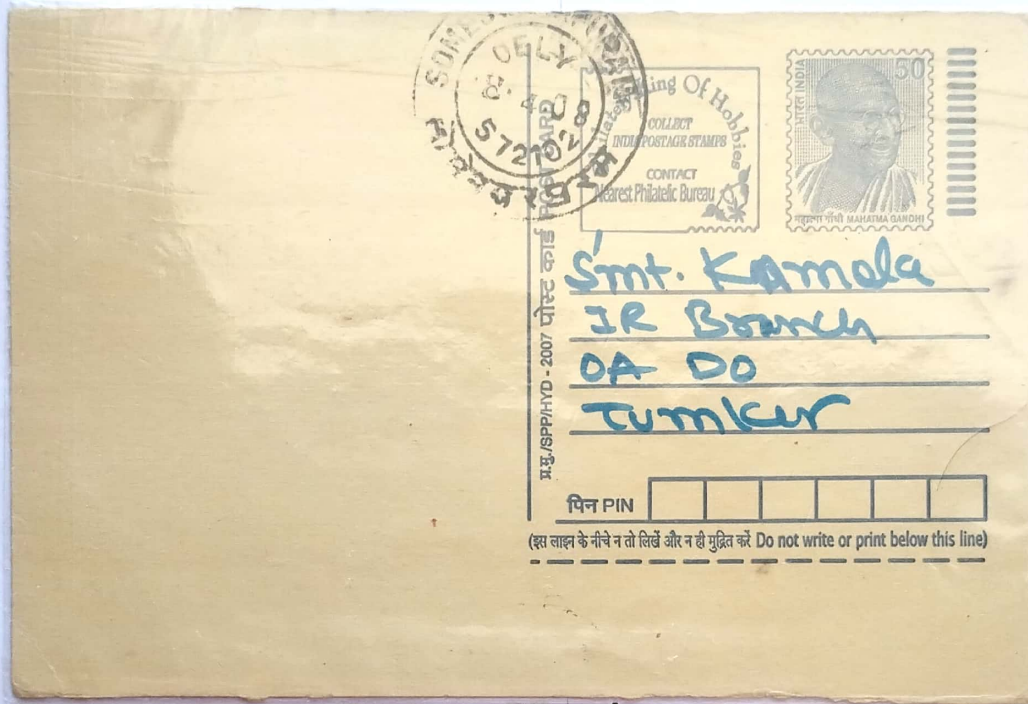 DELY
8. 4. 08
572102
King Of Hobbies
COLLECT
INDIA POSTAGE STAMPS
CONTACT
Nearest Philatelic Bureau
भारत INDIA
50
महात्मा गाँधी MAHATMA GANDHI
प्र.मु./SPP/HYD - 2007 पोस्ट कार्ड POST CARD
Smt. Kamala
IR Branch
OA DO
Tumkur
पिन PIN
(इस लाइन के नीचे न तो लिखें और न ही मुद्रित करें Do not write or print below this line)